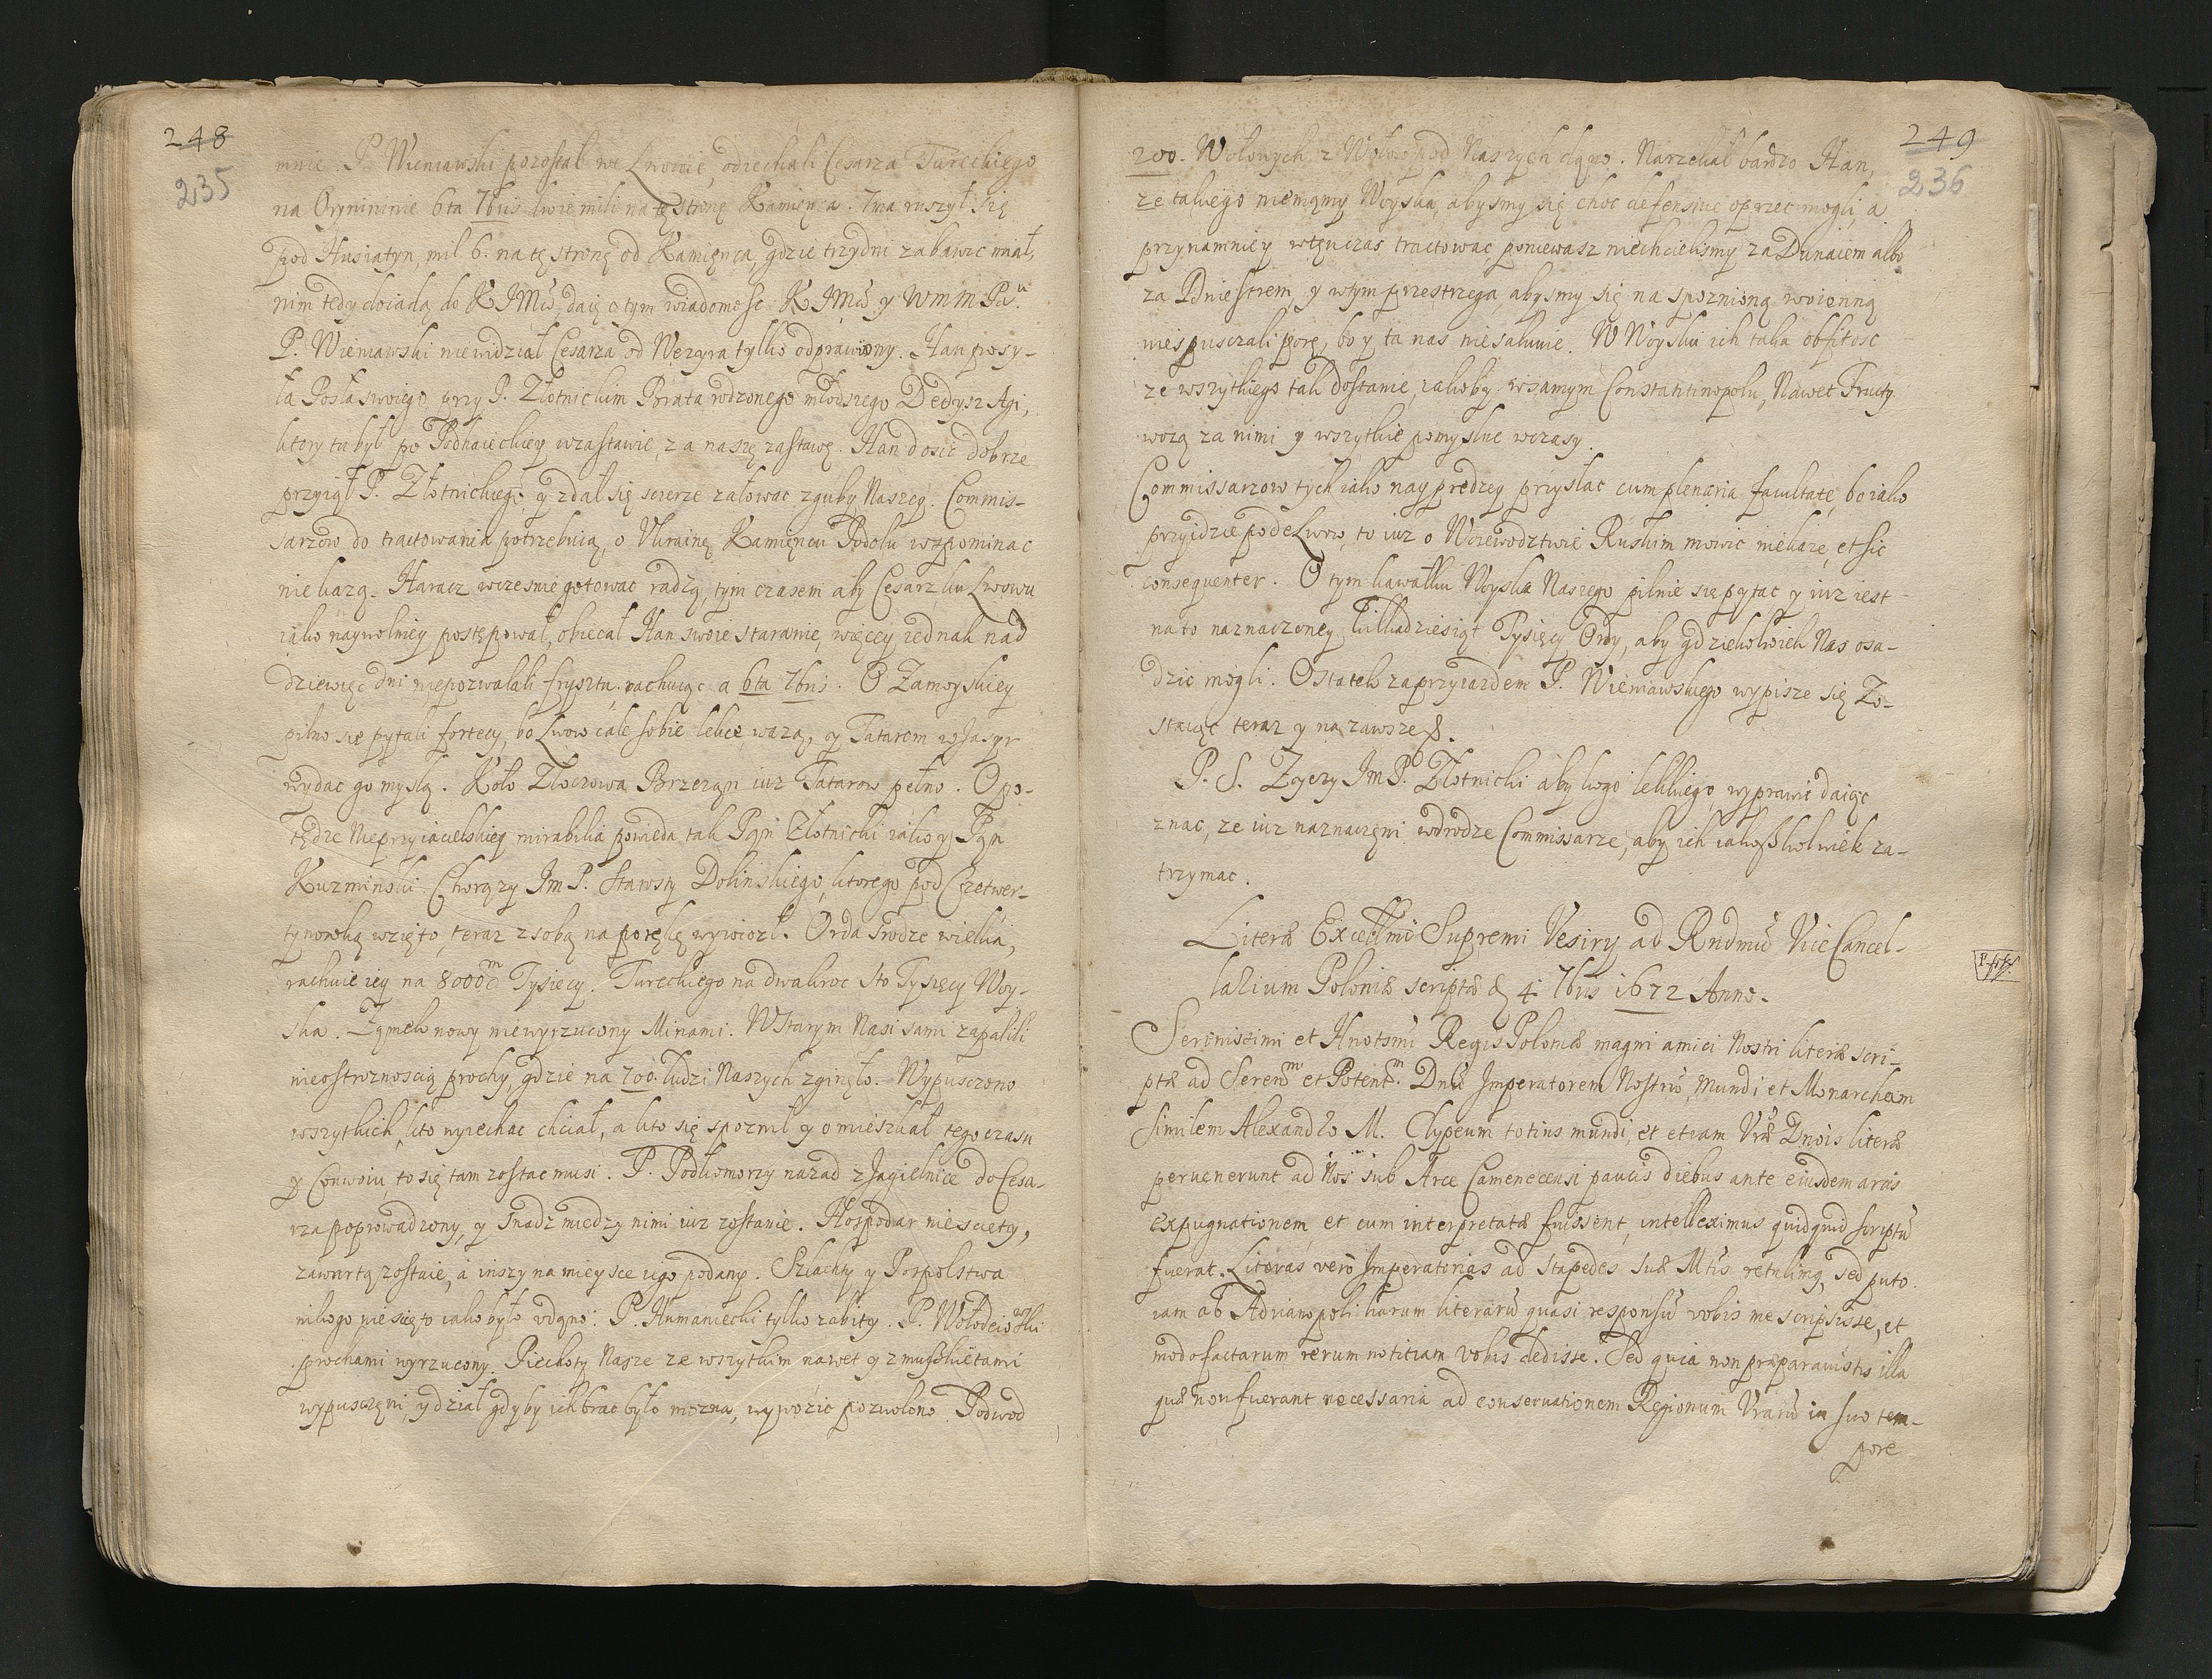 248
235
mnie. P. Wieniawski pozostał we Lwowie, odiechali Cesarza Tureckiego
na Orynininie 6ta 7bris dwie mili na tę stronę Kamięnca. 7ma ruszył się
pod Husiatyn, mil 6. na tę stronę od Kamięnca, gdzie trzy dni zabawic miał,
nim tedy doiadą do KJMci, daię o tym wiadomosc KJMci y WmM Panu.
P. Wieniawski niewidział Cesarza od Wezyra tylko odprawiony. Han posy-
ła Posła swoiego przy P. Złotnickim Brata rodzonego młodszego Dedysz Agi,
ktory tu był po Podhaieckiey wzastawie, za naszę zastawę. Han dosic dobrze
przyiął P. Złotnickiego, y zdał się sczerze załowac zguby Naszey. Commis-
sarzow do tractowania potrzebuią, o Ukrainę Kamięncu Podolu wspominac
nie każą. Haracz wczesnie gotowac radzą, tym czasem aby Cesarz ku Lwowu
iako naywolniey postępował, obiecał Han swoie staranie, więcey iednak nad
dziewięc dni niepozwalali frysztu rachuiąc a 6ta 7bris. O Zamoyskiey
pilno się pytali fortecy, bo Lwow cale sobie lekce ważą, y Tatarom w Jasyr
wydac go myslą. Koło Złoczowa Brzezan iuz Tatarow pełno. O po-
tędze Nieprzyiacielskiey mirabilia powieda tak Pan Złotnicki iako y Pan
Kuzminski Chorązy JmP. Starosty Dolinskiego, ktorego pod Czetwer-
tynowką wzięto, teraz z sobą na porękę wywiozł. Orda srodze wielka,
rachuie iey na 8000 Tysięcy. Tureckiego na dwakroc sto Tysięcy Woy-
ska. Zamek nowy niewyrzucony Minami. W Starym Nasi sami zapalili
nieostroznoscią prochy, gdzie na 700. ludzi Naszych zginęło. Wypusczono
wszytkich, kto wyiechac chciał, a kto się spoznił y omieszkał tego czasu
y Conwoiu, to się tam zostac musi. P. Podkomorzy nazad z Jagielnice do Cesa-
rza poprowadzony, y snadz miedzy nimi iuz zostanie. Hospodar niesciety,
zawartą zostaie, a inszy na mieysce iego podany. Szlachty y Pospolstwa
nikogo nie scięto iako było udano. P. Humaniecki tylko zabity. P. Wołodeiowski
prochami wyrzucony. Piechoty Nasze ze wszytkim nawet y z muszkietami
wypusczeni, y dział gdyby ich brac było mozna, wywozic pozwolono. Podwod
249
236
200. Wołowych z Wołow pod Naszych dano. Narzekał bardzo Han,
ze takiego niemamy Woyska, abysmy się choc defensive oprzec mogli, a
przynamniey wtęnczas tractowac, poniewasz niechcielismy za Dunaiem albo
za Dniestrem, y wtym przestrzega, abysmy się na spoznioną woienną
niespusczali porę, bo y ta nas niesalwuie. W Woysku ich taka obfitosc
ze wszytkiego tak dostanie, iakoby wsamym Constantinopolu, Nawet Fructy
wozą za nimi y wszytkie pomyslne wczasy.
Commissarzow tych iako nayprędzey przysłac cum plenaria facultate, bo iako
przyidzie pode Lwow, to iuz o Woiewodztwie Ruskim mowic niekaze, et sic
consequenter. O tym kawałku Woyska Naszego pilnie się pytac y iuz iest
na to naznaczoney kilkadziesiąt Tysięcy Ordy, aby gdziekolwiek Nas osa-
dzic mogli. Ostatek za przyiazdem P. Wieniawskiego wypisze się Zo-
staiąc teraz y na zawsze &.
P. S. Zyczy JmP. Złotnicki aby kogo lekkiego wyprawic daiąc
znac, ze iuz naznaczeni wdrodze Commissarze, aby ich iakoszkolwiek za-
trzymac.
Literæ Excellmi Supremi Vesiry ad Rndmū ViceCancel-
larium Poloniæ scriptæ d. 4. 7bris 1672 Anno.
Serenissimi et Hnotsmi Regis Poloniæ magni amici Nostri literæ scri-
ptæ ad Serenm. et Potentm. Dnū Imperatorem Nostrū, Mundi et Monarcham
similem Alexandro M. Clypeum totius mundi, et etiam Vræ Dnōis literæ
pervenerunt ad Nos sub Arce Camenecensi paucis diebus ante eiusdem arcis
expugnationem, et cum interpretatæ fuissent, intelleximus quidquid scriptū
fuerat. Literas vero Imperatorias ad stapedes suæ Mtis retulimq, sed puto
iam ab Adrianopoli harum literarū quasi responsū vobis me scripsisse, et
modo factarum rerum notitiam vobis dedisse. Sed quia non præparavistis illa
quæ non fuerant necessaria ad conservationem Regionum Vrarū in suo tem-
pore